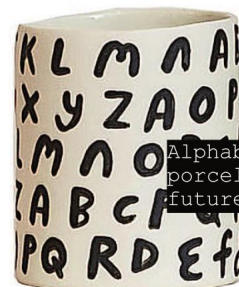 K L M N A B
X Y Z A O P
L M N O
Alphab
porcel
future
Z A B C P Q
P Q R D E f